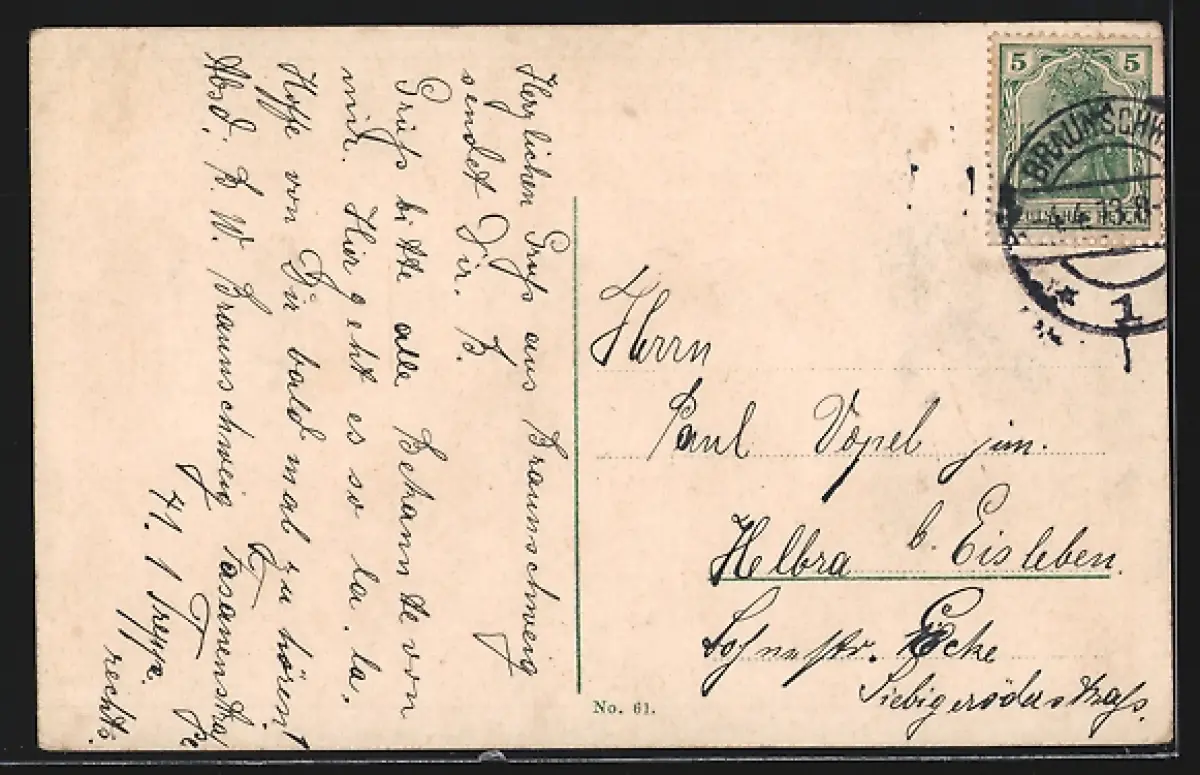 Herzlichen Gruß aus Braunschweig
sendet Dir. B.
Grüß bitte alle Bekannte von
mir. Hier geht es so la. la.
Hoffe von Dir bald mal zu hören!
Absd. B. W. Braunschweig
71. 1 Treppe.
rechts.
5 5
DEUTSCHES REICH
BRAUNSCHW
4.4.13.8-
1
Herrn
Paul Vopel jun.
Helbra b. Eisleben.
Ecke
Siebigerödastraß.
No. 61.